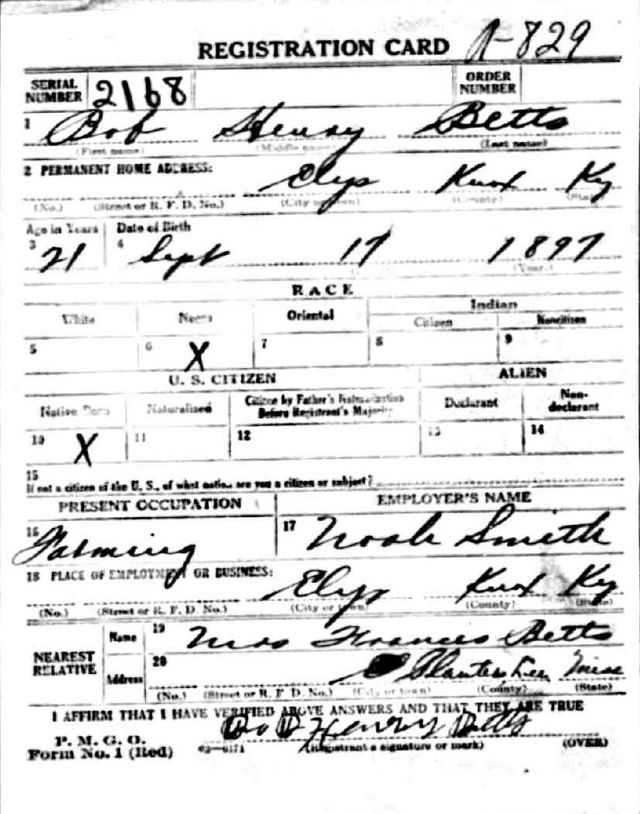 REGISTRATION CARD A-829
SERIAL NUMBER 2168 ORDER NUMBER
1 Bob Henry Betts
(First name) (Middle name) (Last name)
2 PERMANENT HOME ADDRESS:
Elys Knox Ky
(No.) (Street or R. F. D. No.) (City or town) (County) (State)
Age in Years Date of Birth
3 21 4 Sept 17 1897
(Year.)
RACE
White Negro Oriental Indian
Citizen Noncitizen
5 6 X 7 8 9
U. S. CITIZEN ALIEN
Native Born Naturalized Citizen by Father's Naturalization Before Registrant's Majority Declarant Non-declarant
10 X 11 12 13 14
15
If not a citizen of the U. S., of what nation are you a citizen or subject?
PRESENT OCCUPATION EMPLOYER'S NAME
16 Farming 17 Noah Smith
18 PLACE OF EMPLOYMENT OR BUSINESS:
Elys Knox Ky
(No.) (Street or R. F. D. No.) (City or town) (County) (State)
NEAREST RELATIVE
Name 19 Mrs Frances Betts
Address 20
(No.) (Street or R. F. D. No.) (City or town) (County) (State)
I AFFIRM THAT I HAVE VERIFIED ABOVE ANSWERS AND THAT THEY ARE TRUE
Bob Henry Betts
P. M. G. O.
Form No. 1 (Red) 03-6171 (Registrant's signature or mark) (OVER)